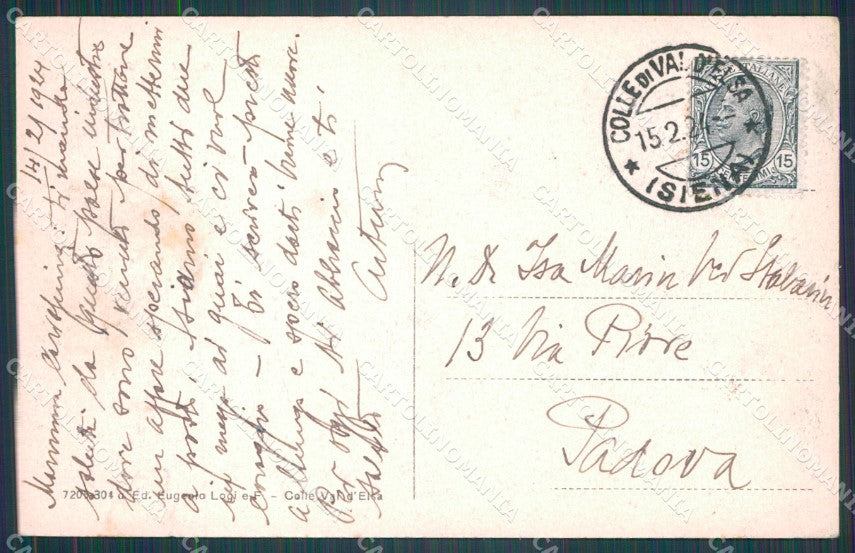 14/2/1924
Mamma carissima. Ti mando
saluti da questo paese industre
dove sono venuto per trattare
un affare sperando di mettermi
a posto. Siamo tutti due
in mezzo ai guai e ci vuol
coraggio - Ti scriverò presto
a lungo e spero darti buone nuove.
Per oggi ti abbraccio e ti
Arturo
COLLE DI VAL D'ELSA
15.2.24
(SIENA)
15 15
N. D. Isa Marin ved
13 Via Pieve
Padova
Ed. Eugenio Logi e F. - Colle Val d'Elsa
CARTOLINOMANIA